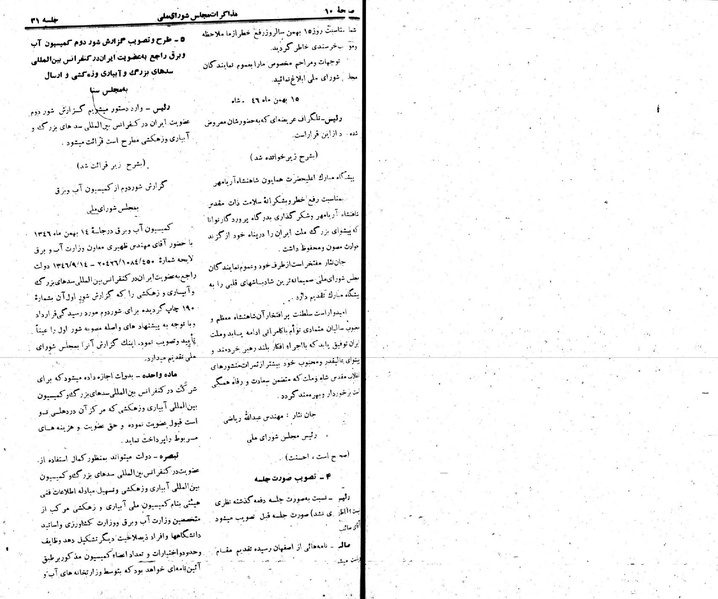 صفحهٔ ۱۰
مذاکرات مجلس شورای ملی
جلسه ۳۱
بمناسبت روز ۱۵ بهمن سالروز رفع خطر ازما ملاحظه
خرسندی خاطر گردید.
توجهات ومراحم مخصوص مارا بعموم نمایندگان
شورای ملی ابلاغ نمائید.
۱۵ بهمن ماه ۴۶ ـ شاه
رئیس ـ تلگراف عریضه‌ای که به حضورشان معروض
از این قراراست.
(بشرح زیر خوانده شد)
پیشگاه مبارک اعلیحضرت همایون شاهنشاه آریامهر
بمناسبت رفع خطر و بشکرانهٔ سلامت ذات مقدس
شاهنشاه آریامهر وشکرگذاری بدرگاه پروردگار توانا
که پیشوای بزرگ ملت ایران را درپناه خود از گزند
حوادث مصون ومحفوظ داشت.
جان نثار مفتخر است از طرف خود و عموم نمایندگان
مجلس شورای ملی صمیمانه‌ترین شادباشهای قلبی را به
پیشگاه مبارک تقدیم دارد.
امیدوار است سلطنت پر افتخار آن شاهنشاه معظم و
محبوب سالیان متمادی توأم با کامرانی ادامه یابد وملت
ایران توفیق یابد که با اجراء افکار بلند رهبر خردمند و
پیشوای عالیقدر ومحبوب خود بیشتر از ثمرات منشورهای
انقلاب مقدس شاه وملت که متضمن سعادت و رفاه همگی
است برخوردار وبهره‌مند گردد.
جان نثار : مهندس عبدالله ریاضی
رئیس مجلس شورای ملی
(صحیح است، احسنت)
۴ ـ تصویب صورت جلسه
رئیس ـ نسبت به صورت جلسه دفعه گذشته نظری
نیست؟ (اظهاری نشد) صورت جلسه قبل تصویب میشود
نامه‌هائی از اصفهان رسیده تقدیم مقام
میشود
۵ ـ طرح و تصویب گزارش شور دوم کمیسیون آب
وبرق راجع به عضویت ایران در کنفرانس بین‌المللی
سدهای بزرگ و آبیاری وزه‌کشی و ارسال
به مجلس سنا
رئیس ـ وارد دستور میشویم گزارش شور دوم
عضویت ایران در کنفرانس بین‌المللی سدهای بزرگ و
آبیاری وزهکشی مطرح است قرائت میشود.
(بشرح زیر قرائت شد)
گزارش شور دوم از کمیسیون آب وبرق
بمجلس شورای ملی
کمیسیون آب وبرق درجلسهٔ ۱۴ بهمن ماه ۱۳۴۶
با حضور آقای مهندس ظهیری معاون وزارت آب و برق
لایحه شمارهٔ ۲۰۴۲۶/۱۰۸۴/۴۵۰ ـ ۱۳۴۶/۹/۱۴ دولت
راجع به عضویت ایران در کنفرانس بین‌المللی سدهای بزرگ
و آبیاری و زهکشی را که گزارش شور اول آن بشمارهٔ
۱۹۰ چاپ گردیده برای شور دوم مورد رسیدگی قرارداد
و با توجه به پیشنهاد های واصله مصوبه شور اول را عیناً
تأیید وتصویب نمود. اینک گزارش آنرا بمجلس شورای
ملی تقدیم میدارد.
ماده واحده ـ بدولت اجازه داده میشود که برای
شرکت در کنفرانس بین‌المللی سدهای بزرگ و کمیسیون
بین‌المللی آبیاری وزهکشی که مرکز آن دردهلی نو
است قبول عضویت نموده و حق عضویت و هزینه های
مربوط را پرداخت نماید.
تبصره ـ دولت میتواند بمنظور کمال استفاده از
عضویت در کنفرانس بین‌المللی سدهای بزرگ و کمیسیون
بین‌المللی آبیاری وزهکشی وتسهیل مبادله اطلاعات فنی
هیئتی بنام کمیسیون ملی آبیاری و زهکشی مرکب از
متخصصین وزارت آب وبرق ووزارت کشاورزی و اساتید
دانشگاهها وافراد ذیصلاحیت دیگر تشکیل دهد وظایف
وحدود و اختیارات و تعداد اعضاء کمیسیون مذکور بر طبق
آئین‌نامه‌ای خواهد بود که بتوسط وزارتخانه های آب و